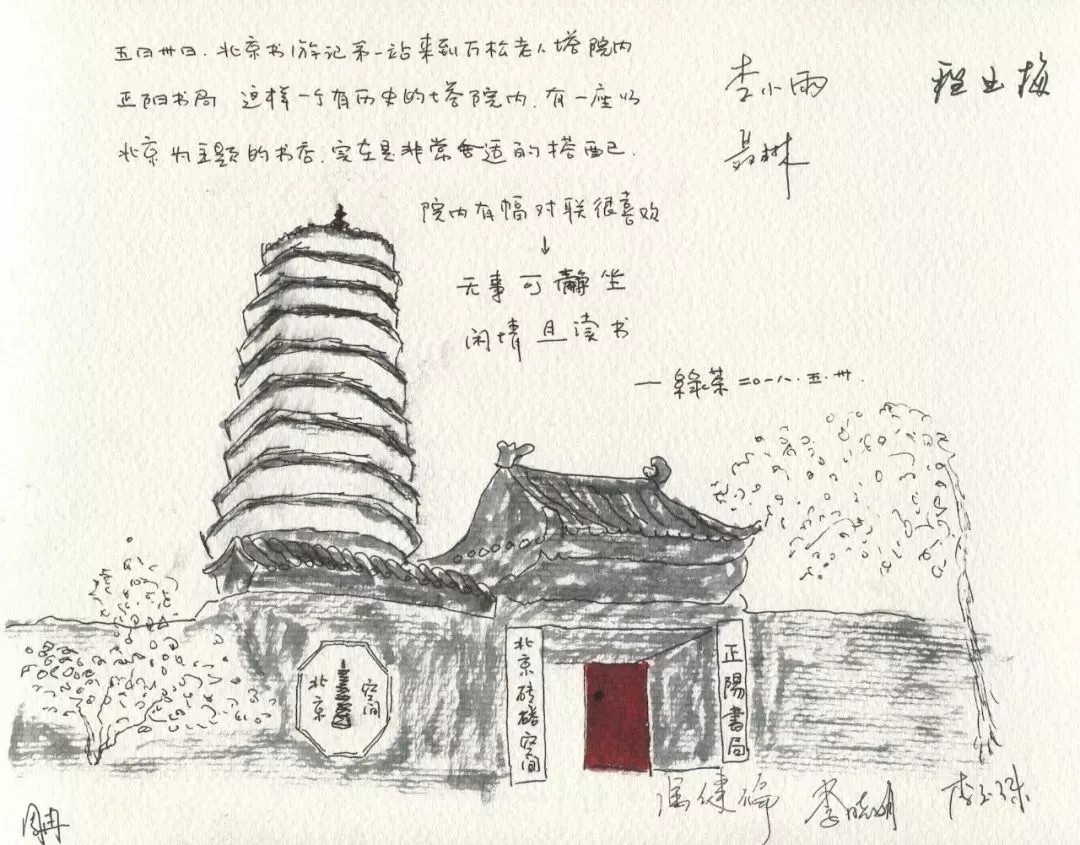 五月卅日.北京书游记第一站来到万松老人塔院内
正阳书局 这样一个有历史的塔院内.有一座以
北京为主题的书店.实在是非常合适的搭配.
院内有幅对联很喜欢
↓
无事可静坐
闲情且读书
一綠茶 二〇一八.五.卅.
李小雨
程玉梅
聂琳
北京
空间
北京砖塔空间
正陽書局
李晓明